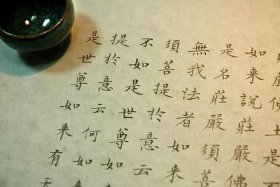 如來說莊嚴佛
是名莊嚴須菩
無我法者如來
須菩提於意云
不如是世尊如
提於意云何如
是世尊如來有